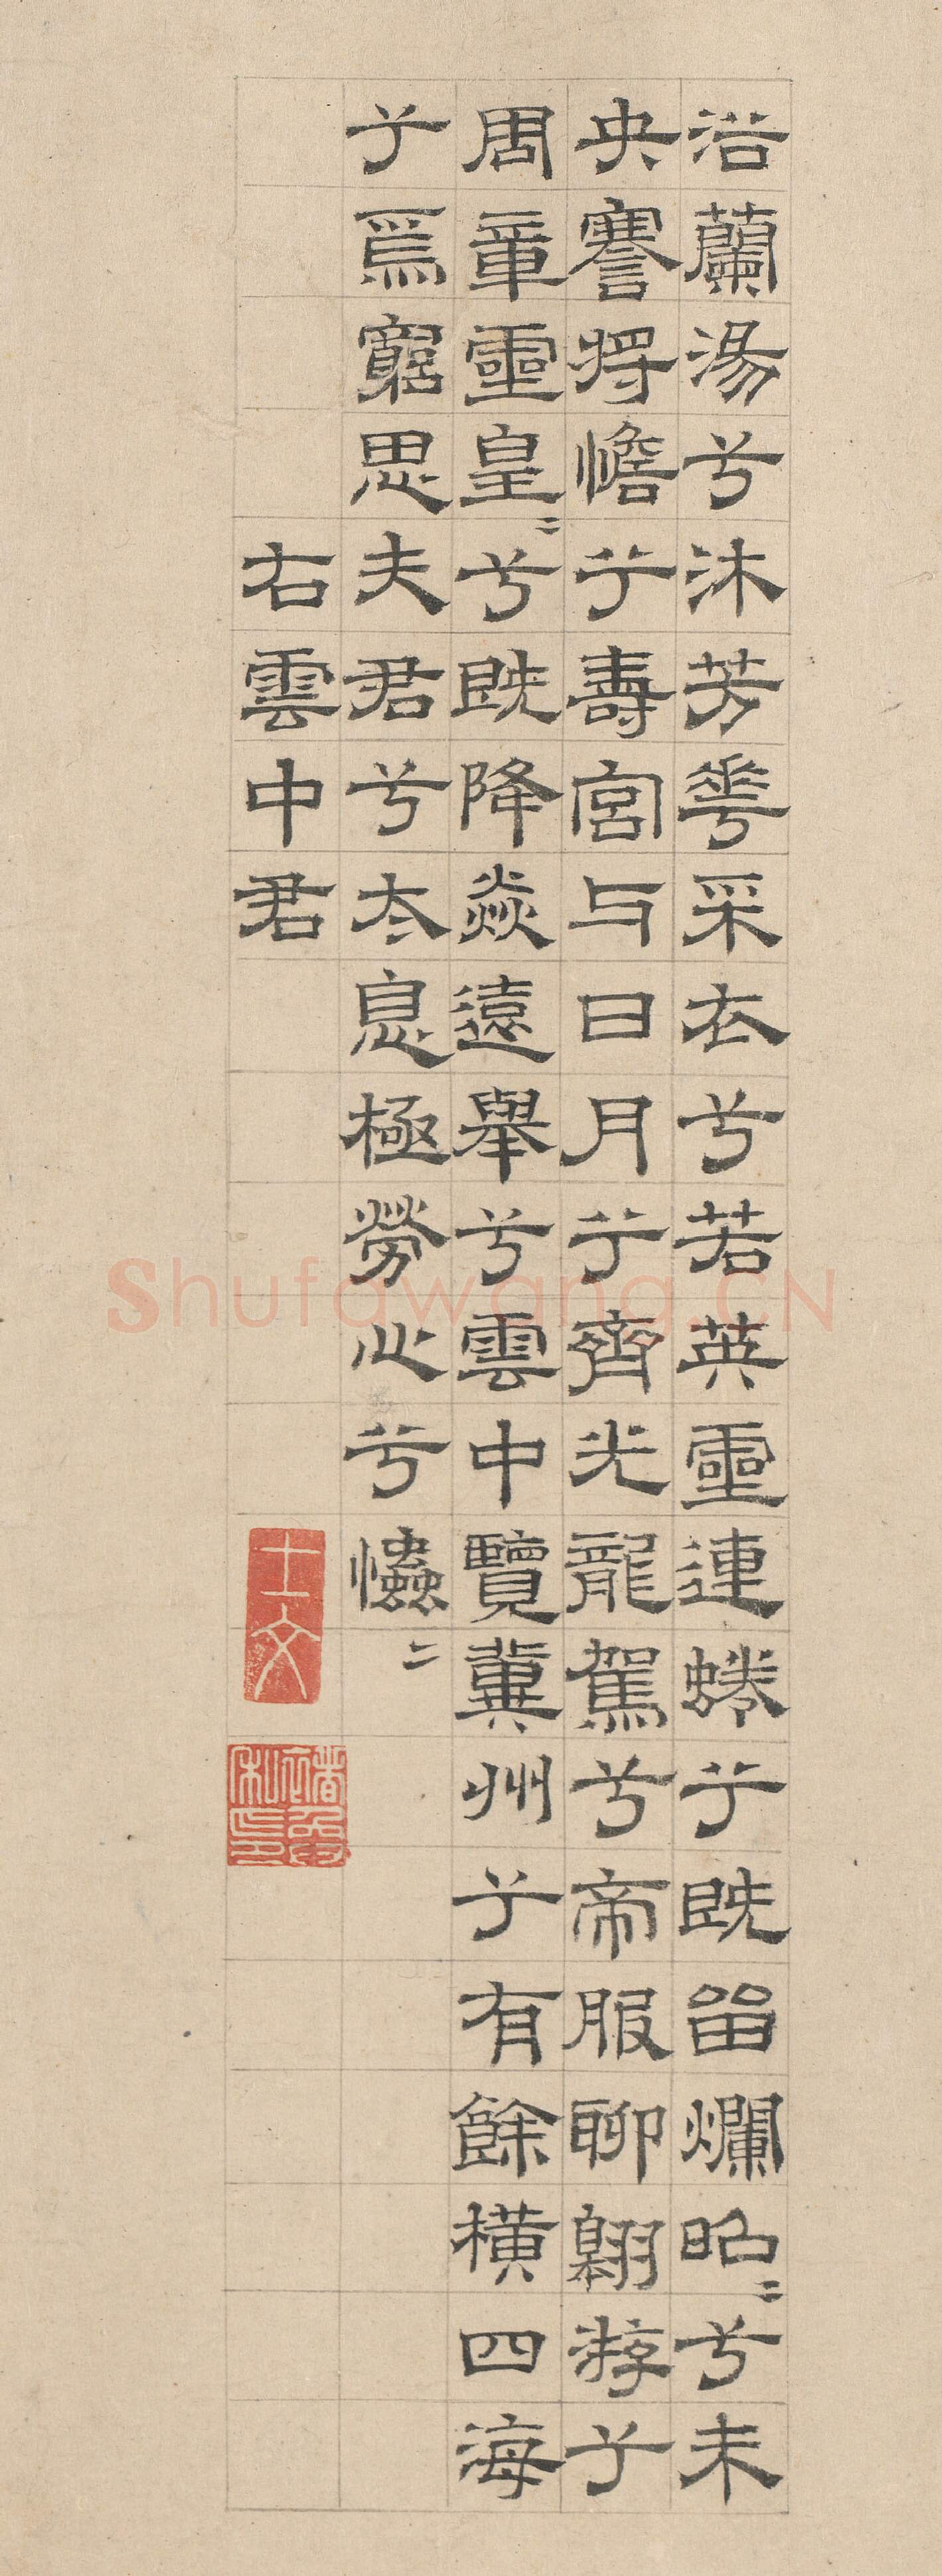 浴蘭湯兮沐芳華采衣兮若英靈連蜷兮既留爛昭〻兮未
央謇將憺兮壽宮与日月兮齊光龍駕兮帝服聊翱游兮
周章靈皇〻兮既降猋遠舉兮雲中覽冀州兮有餘橫四海
兮焉窮思夫君兮太息極勞心兮𢥞〻
右雲中君
士文
Shufawang.CN